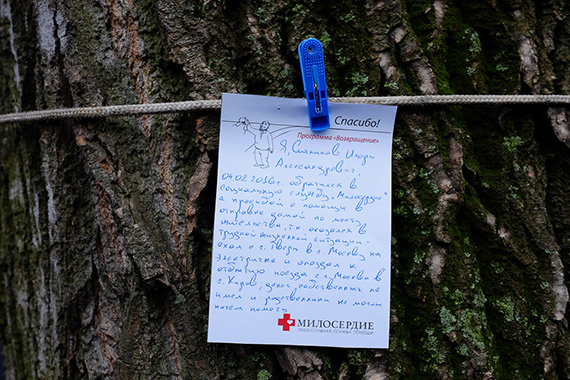 Спасибо!
Программа «Возвращение»
Я, Игорь
Александрович,
04.02.2016г. обратился в
социальную службу „Милосердие"
с просьбой о помощи в
отправке домой по месту
жительства, т.к. оказался в
трудной жизненной ситуации -
ехал с г. Тверь в г. Москву на
электричке и опоздал к
отбытию поезда с г. Москва в
г. Киров, денег собственных не
имел и родственники не могли
ничем помочь
МИЛОСЕРДИЕ
ПРАВОСЛАВНАЯ СЛУЖБА ПОМОЩИ